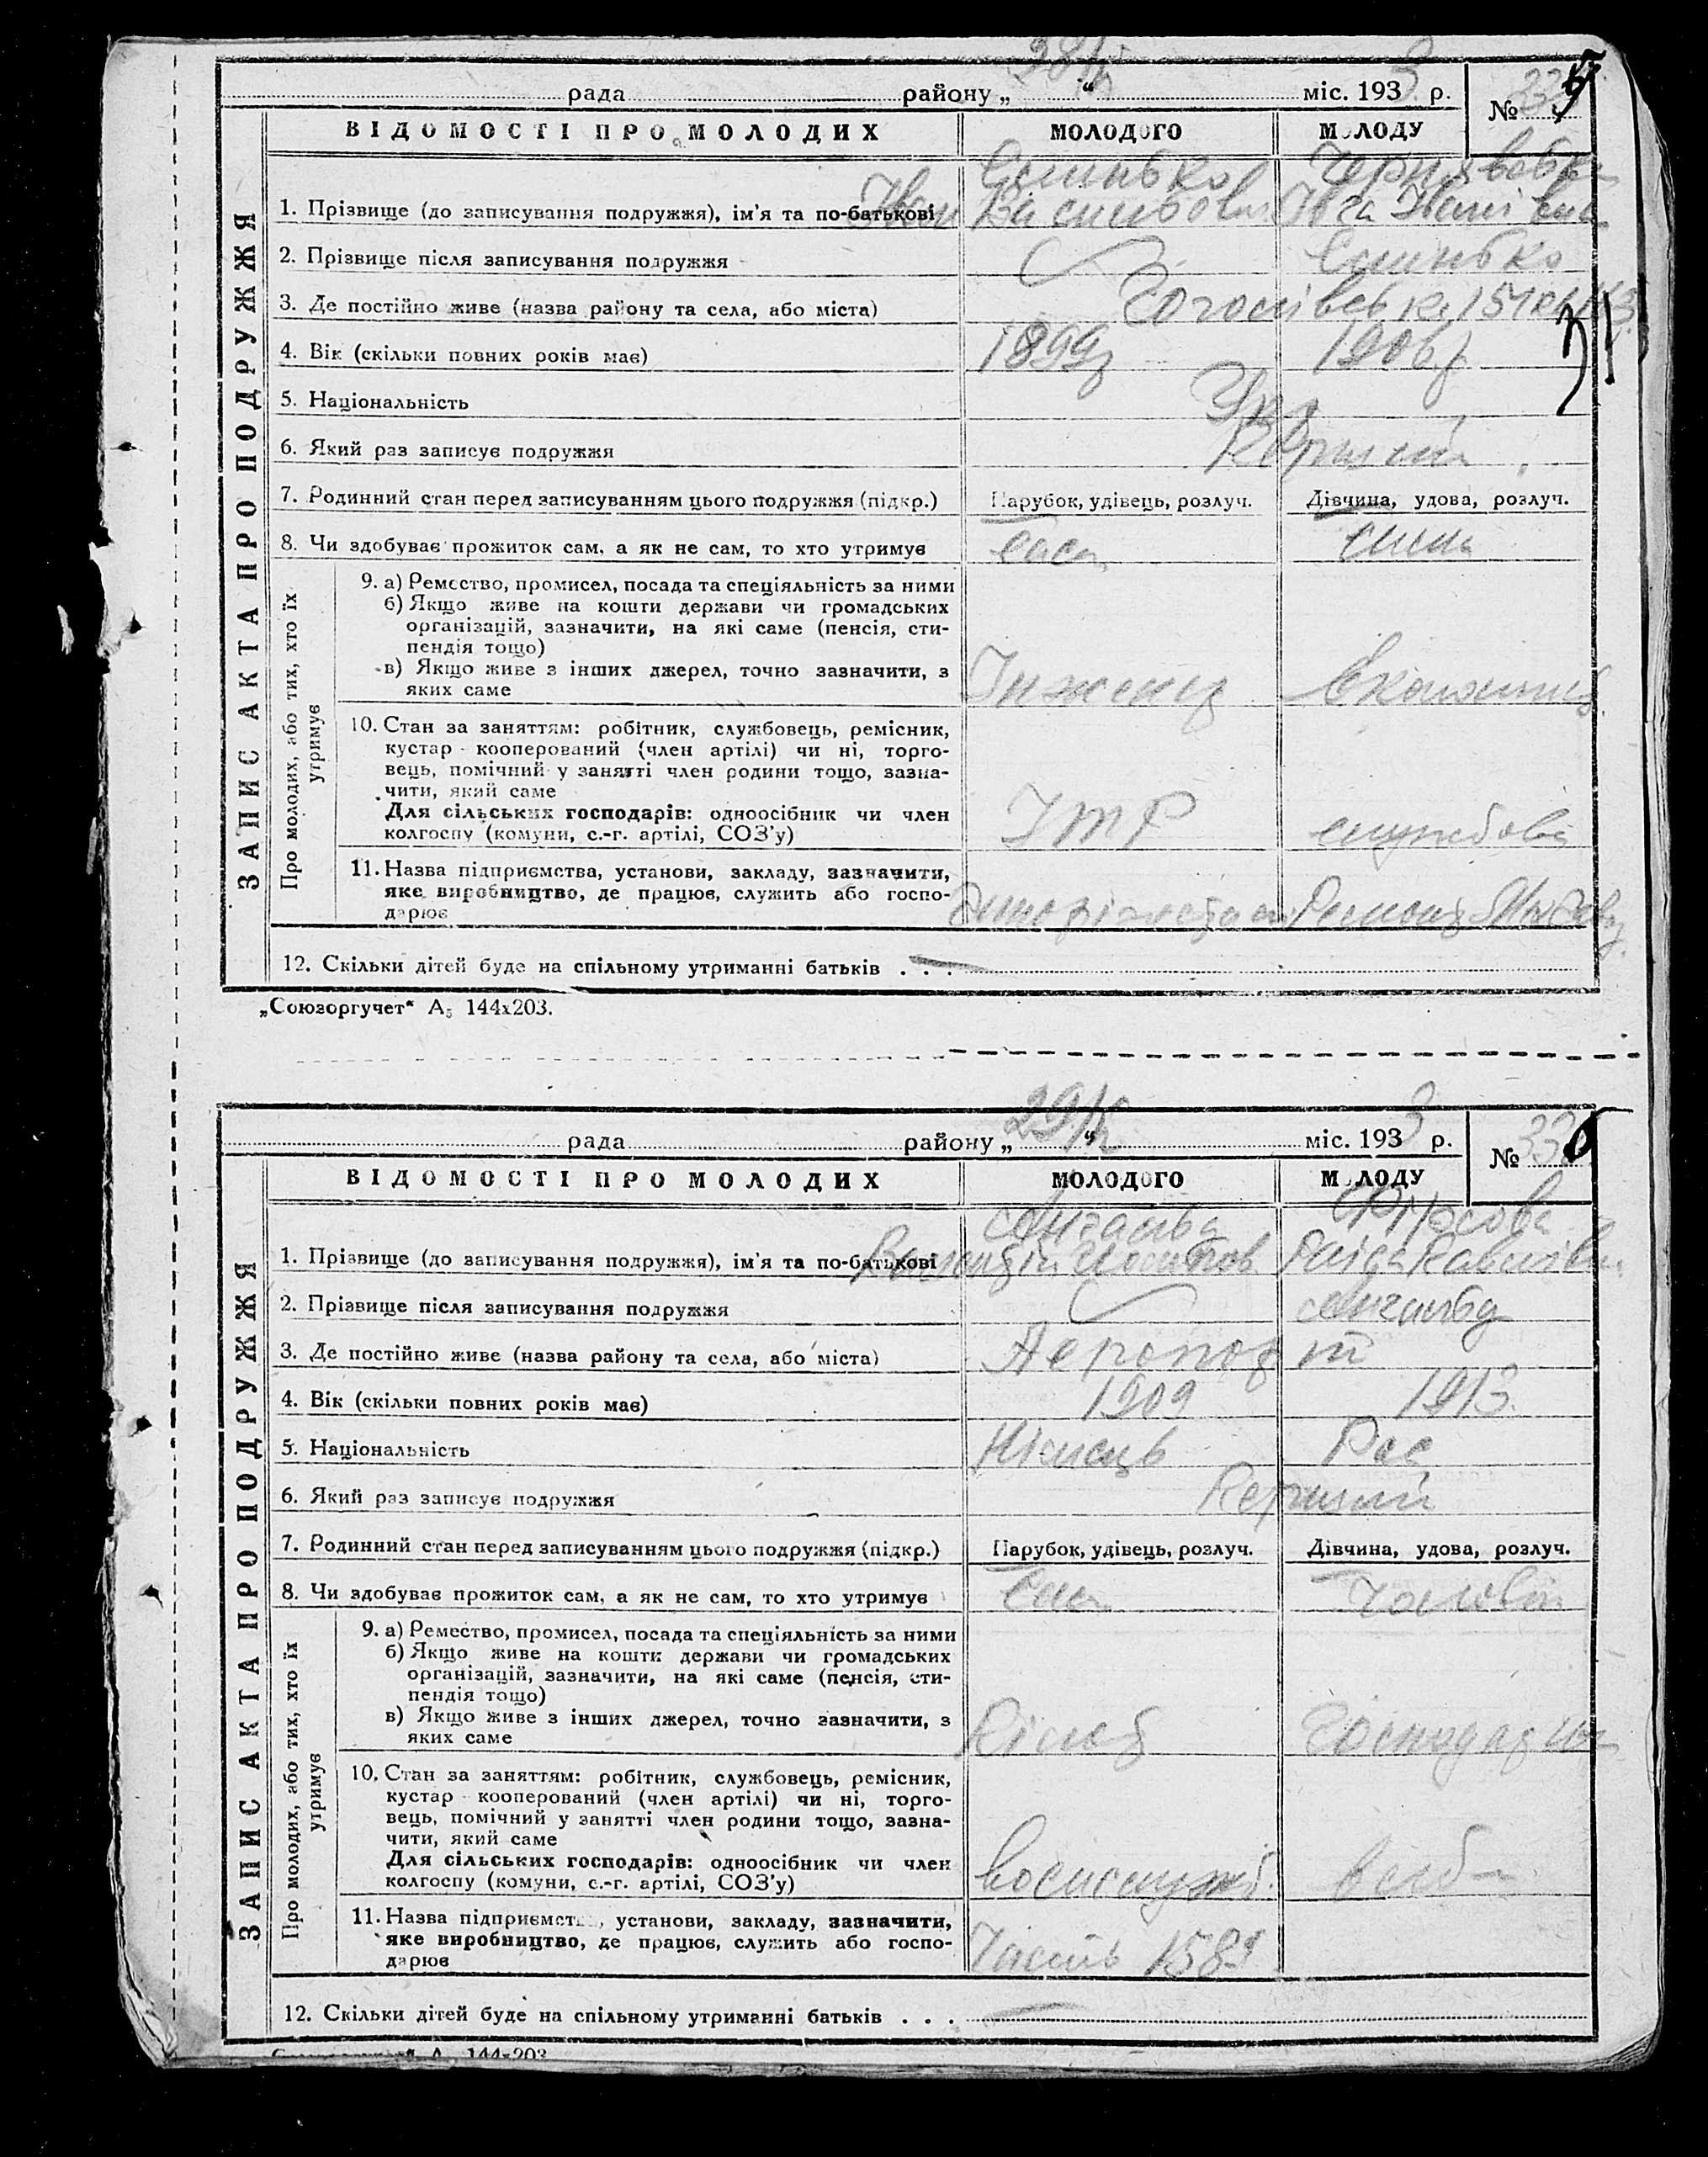 рада району „28/X“ міс. 1933 р. №
ВІДОМОСТІ ПРО МОЛОДИХ МОЛОДОГО МОЛОДУ
ЗАПИС АКТА ПРО ПОДРУЖЖЯ
1. Прізвище (до записування подружжя), ім'я та по-батькові Іван
2. Прізвище після записування подружжя
3. Де постійно живе (назва району та села, або міста)
4. Вік (скільки повних років має) 1899р 1906р
5. Національність Укр
6. Який раз записує подружжя Перший
7. Родинний стан перед записуванням цього подружжя (підкр.) Парубок, удівець, розлуч. Дівчина, удова, розлуч.
8. Чи здобуває прожиток сам, а як не сам, то хто утримує сам сама
Про молодих, або тих, хто їх утримує
9. а) Ремество, промисел, посада та спеціяльність за ними
б) Якщо живе на кошти держави чи громадських
організацій, зазначити, на які саме (пенсія, сти-
пендія тощо)
в) Якщо живе з інших джерел, точно зазначити, з
яких саме Інженер Економіст
10. Стан за заняттям: робітник, службовець, ремісник,
кустар - кооперований (член артілі) чи ні, торго-
вець, помічний у занятті член родини тощо, зазна-
чити, який саме
Для сільських господарів: одноосібник чи член
колгоспу (комуни, с.-г. артілі, СОЗ'у) ІТР службов
11. Назва підприємства, установи, закладу, зазначити,
яке виробництво, де працює, служить або госпо-
дарює
12. Скільки дітей буде на спільному утриманні батьків . . .
„Союзоргучет“ А₅ 144х203.
рада району „29/X“ міс. 1933 р. №
ВІДОМОСТІ ПРО МОЛОДИХ МОЛОДОГО МОЛОДУ
ЗАПИС АКТА ПРО ПОДРУЖЖЯ
1. Прізвище (до записування подружжя), ім'я та по-батькові
2. Прізвище після записування подружжя
3. Де постійно живе (назва району та села, або міста) Аеропорт
4. Вік (скільки повних років має) 1909 1913
5. Національність Німець Рос
6. Який раз записує подружжя Перший
7. Родинний стан перед записуванням цього подружжя (підкр.) Парубок, удівець, розлуч. Дівчина, удова, розлуч.
8. Чи здобуває прожиток сам, а як не сам, то хто утримує Сам Чоловік
Про молодих, або тих, хто їх утримує
9. а) Ремество, промисел, посада та спеціяльність за ними
б) Якщо живе на кошти держави чи громадських
організацій, зазначити, на які саме (пенсія, сти-
пендія тощо)
в) Якщо живе з інших джерел, точно зазначити, з
яких саме
10. Стан за заняттям: робітник, службовець, ремісник,
кустар - кооперований (член артілі) чи ні, торго-
вець, помічний у занятті член родини тощо, зазна-
чити, який саме
Для сільських господарів: одноосібник чи член
колгоспу (комуни, с.-г. артілі, СОЗ'у)
11. Назва підприємства, установи, закладу, зазначити,
яке виробництво, де працює, служить або госпо-
дарює Часть 1589
12. Скільки дітей буде на спільному утриманні батьків . . .